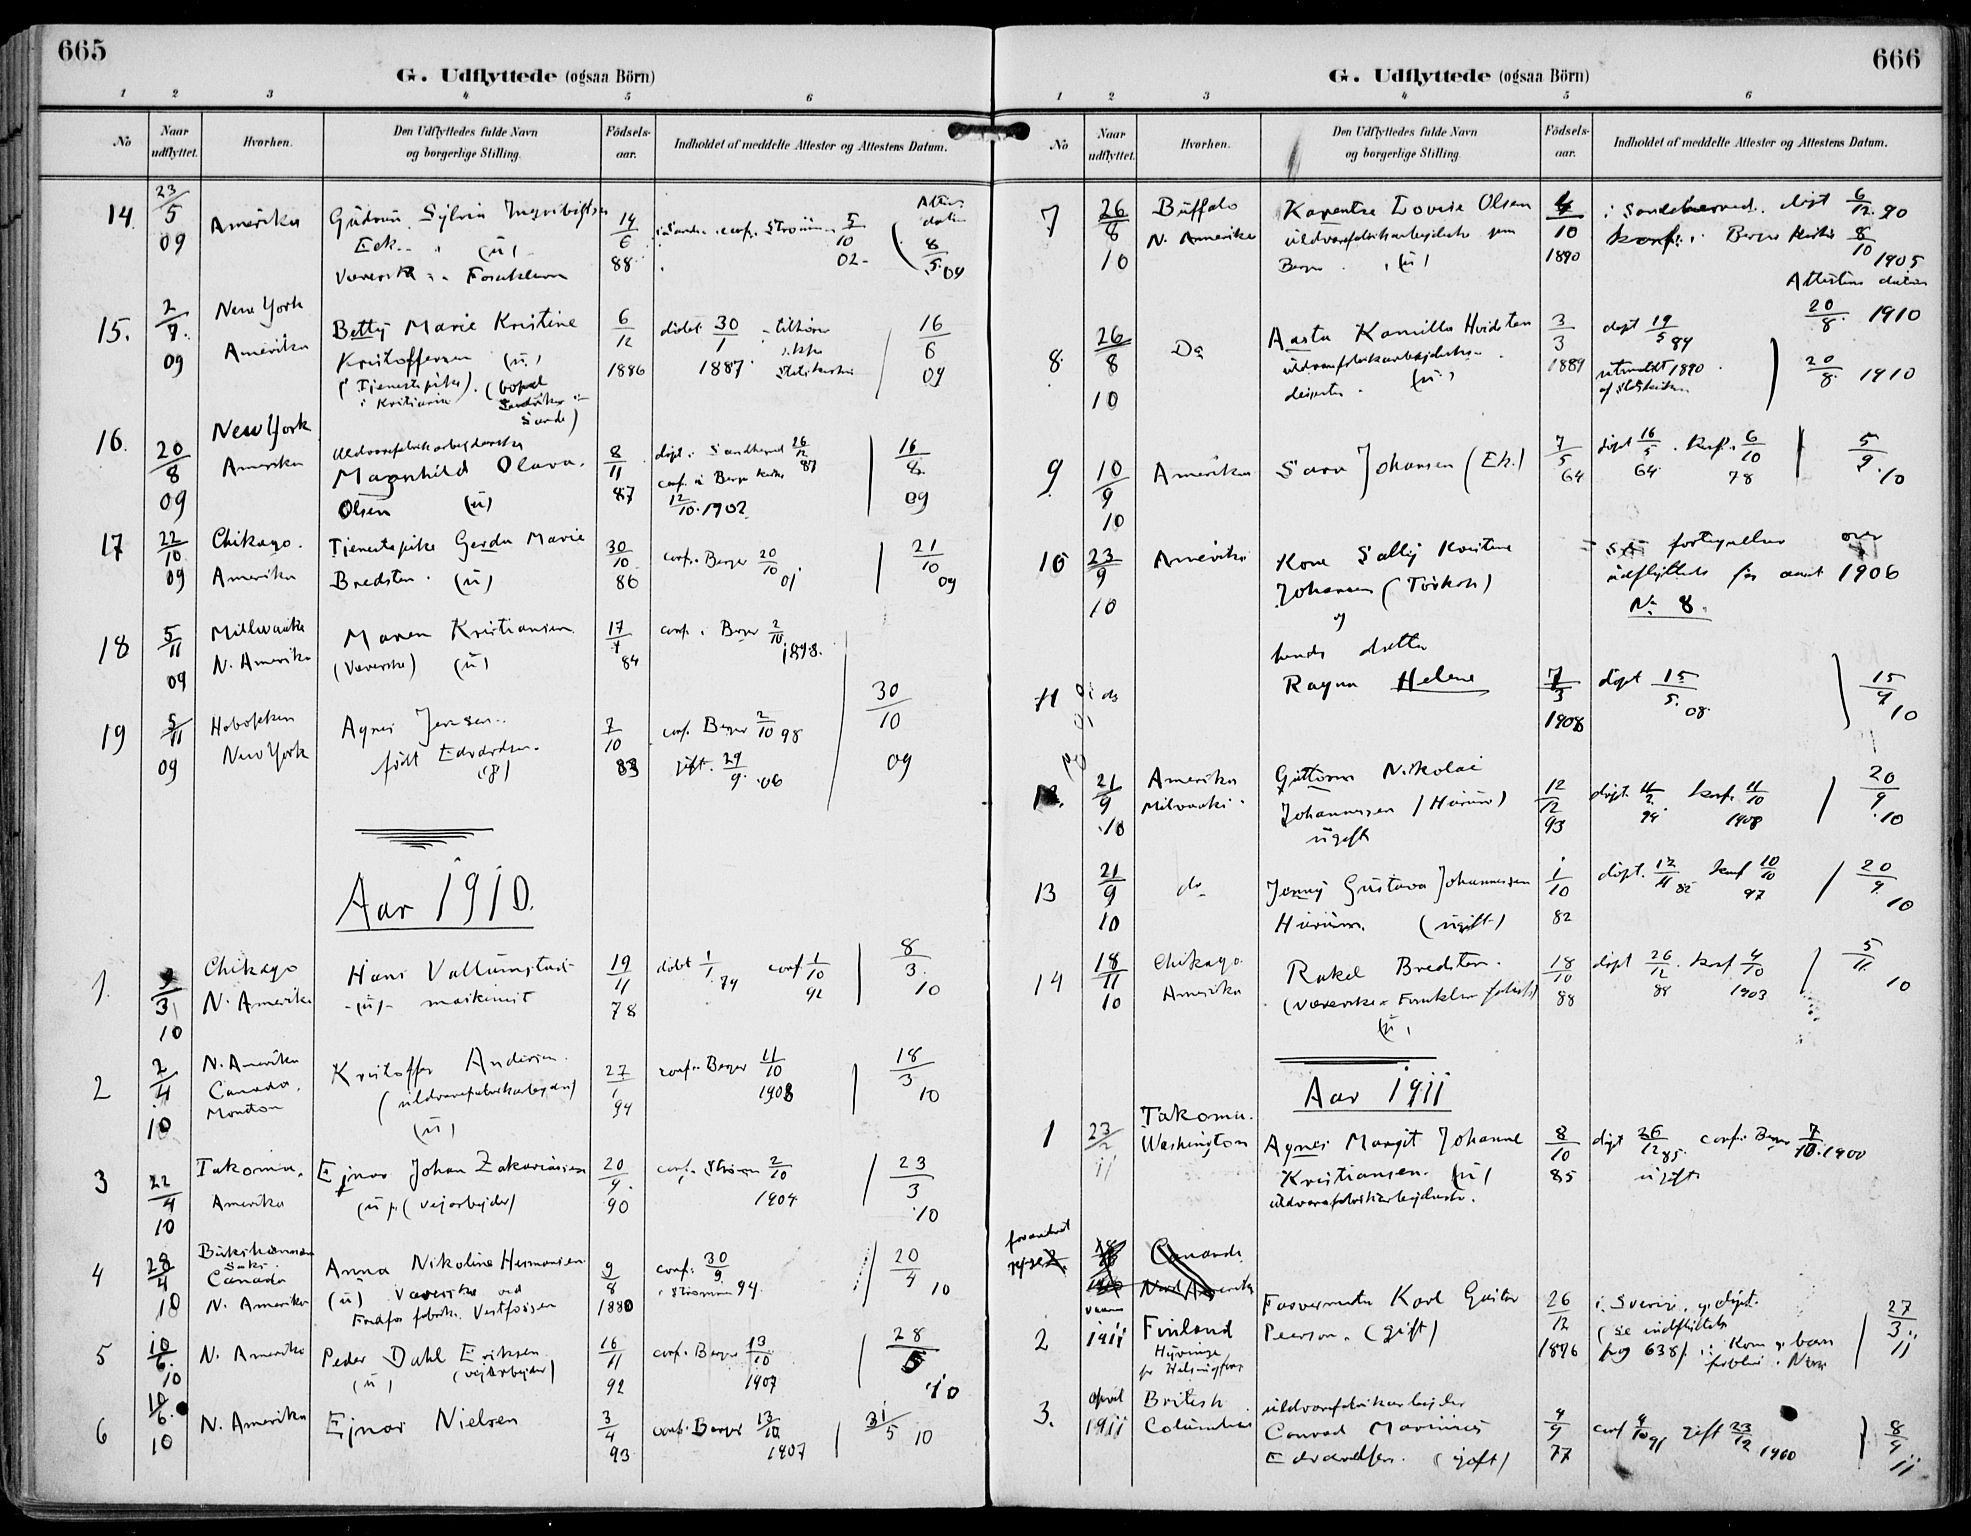 665
G. Udflyttede (ogsaa Börn)
1 2 3 4 5 6
No
Naar udflyttet.
Hvorhen.
Den Udflyttedes fulde Navn og borgerlige Stilling.
Födsels-aar.
Indholdet af meddelte Attester og Attestens Datum.
14 23/5 09 Amerika
Gudrun Sylvia
Eck. (ü)
14/6 88
conf. i Strømm 5/10 02
8/5 09
15. 2/7 09 New York
Amerika
Betty Marie Kristine
Kristoffersen (ü)
(Tjenestepike)
i Kristiania
Sande)
6/12 1886
døbt 30/1 1887
16/6 09
16. 20/8 09 New York
Amerika
uldvarefabrikarbejderske
Magnhild Olava
Olsen (ü)
8/11 87
døpt i Sandeherred 26/12 87
conf. i Berger Kirke
12/10 1902
16/8 09
17 22/10 09 Chikago.
Amerika
Tjenestepike Gerda Marie
Bredsten. (ü)
30/10 86
conf. Berger 20/10 01
21/10 09
18 5/11 09 Millwauke
N. Amerika
Maren Kristiansen
(Væverske) (ü)
17/4 84
conf. i Berger 2/10 1898.
19 5/11 09 Hobokken
New York
Agnes Jensen
født Edvardsen.
(g)
7/10 83
conf. Berger 2/10 98
gift. 29/9 06
30/10 09
Aar 1910.
1. 3/3 10 Chikago
N. Amerika
Hans Vallumstad
(ü) maskinist
19/11 78
døbt 1/1 79 conf 1/10 92
8/3 10
2 2/4 10 N. Amerika
Canada.
Kristoffer Andersen
(uldvarefabrikarbejder)
(ü)
27/1 94
conf. Berger 11/10 1908
18/3 10
3 22/4 10 Takoma.
Amerika
Ejnar Johan Zakariassen
(ü) (vejarbejder)
20/9 90
conf. Strømm 2/10 1904
23/3 10
4 28/4 10
Canada
N. Amerika
Anna Nikoline Hermansen
(ü) Væverske ved
Fosdfos fabrik. Vestfossen
9/8 1880
conf. 30/9 94
i Strømmen
20/4 10
5 10/6 10 N. Amerika
Peder Dahl Eriksen
(ü) (vejarbejder)
16/11 92
conf. Berger 13/10 1907
28/5 10
6 10/6 10 N. Amerika
Ejnar Nielsen
3/4 93
conf. Berger 13/10 1907
31/5 10
666
G. Udflyttede (ogsaa Börn)
1 2 3 4 5 6
No
Naar udflyttet.
Hvorhen.
Den Udflyttedes fulde Navn og borgerlige Stilling.
Födsels-aar.
Indholdet af meddelte Attester og Attestens Datum.
7 26/8 10 Buffalo
N. Amerika
Karentze Lovise Olsen
uldvarefabrikarbejderske
Berger (ü)
4/10 1890
i Sandeherred. døpt 6/12 90
konf. i Berger Kirke 8/10 1905
Attestens datum
20/8 1910
8. 26/8 10 Do
Aasta Kamilla Hvidsten
uldvarefabrikarbejderske
(ü)
3/3 1889
døpt 19/5 89
utmeldt 1890
af Statskirken
20/8 1910
9 10/9 10 Amerika
Sara Johansen (Ek.)
7/5 64
døpt 16/5 64. Konf. 6/10 78
5/9 10
10 23/9 10 Amerika
Kone Sally Kristine
Johansen (Torkop)
og
Se fortegnelse over
udflyttede for aaret 1906
No 8.
11 do
hendes datter
Ragna Helene
7/3 1908
døpt 15/5 08
15/9 10
12. 21/9 10 Amerika
Milwauki
Guttorm Nikolai
Johannessen (Hurum)
ugift
12/12 93
døpt. 11/2 94 konf. 11/10 1908
20/9 10
13 21/9 10 do
Jenny Gustava Johannessen
Hurum. (ugift)
1/10 82
døpt. 12/11 82 konf 10/10 97
20/9 10
14 18/11 10 Chikago.
Amerika
Rakel Bredsten.
(Væverske Fossekleven fabrik)
(ü)
18/10 88
døpt 26/12 88 konf 4/10 1903
5/11 10
Aar 1911
1 23/2 11 Takoma.
Washington
Agnes Margit Johanne
Kristiansen. (ü)
uldvarefabrikarbejderske.
8/10 85
døpt 26/12 85. conf. i Berger 7/10 1900
ugift
Canada
Nord Amerika
2 1911 Finland
Farvermester Karl Gustav
Peerson. (gift)
26/12 1876
i Sverige. døpt.
(se indflyttede
pag 638). Kone og barn
forblir i Norge
27/3 11
3. April 1911 British
Columbia
uldvarefabrikarbejder
Conrad Marinius
Edvardsen. (gift)
4/9 77
conf 4/10 91 gift 23/12 1900
8/4 11